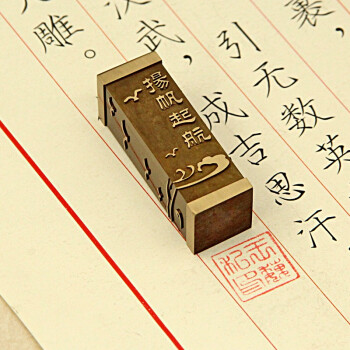 裹，
引无数英
汉武，
成吉思汗，
雕。
揚帆起航